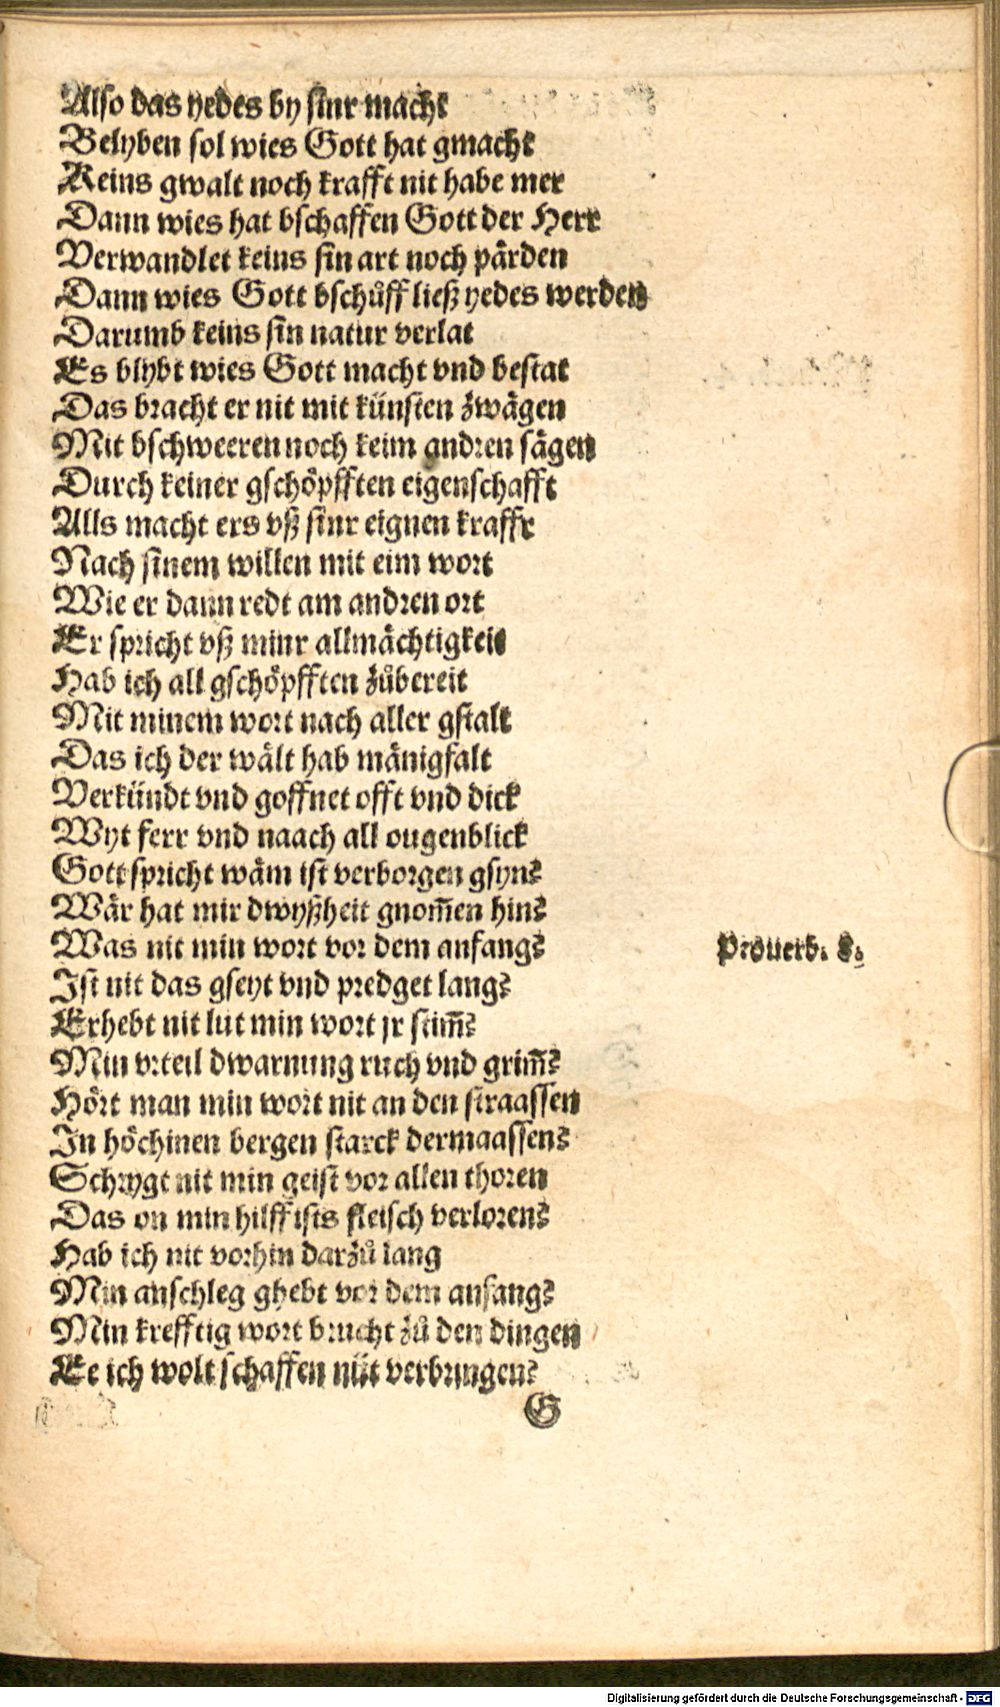 Also das yedes by sinr macht
Belyben sol wies Gott hat gmacht
Keins gwalt noch krafft nit habe mer
Dann wies hat bschaffen Gott der Herr
Verwandlet keins sin art noch pärden
Dann wies Gott bschůff ließ yedes werden
Darumb keins sin natur verlat
Es blybt wies Gott macht vnd bestat
Das bracht er nit mit künsten zwägen
Mit bschweeren noch keim andren sägen
Durch keiner gschöpfften eigenschafft
Alls macht ers vß sinr eignen krafft
Nach sinem willen mit eim wort
Wie er dann redt am andren ort
Er spricht vß minr allmächtigkeit
Hab ich all gschöpfften zůbereit
Mit minem wort nach aller gstalt
Das ich der wält hab mänigfalt
Verkündt vnd goffnet offt vnd dick
Wyt ferr vnd naach all ougenblick
Gott spricht wäm ist verborgen gsyn?
Wär hat mir dwyßheit gnom̄en hin?
Was nit min wort vor dem anfang?
Ist nit das gseyt vnd predget lang?
Erhebt nit lut min wort jr stim̄?
Min vrteil dwarnung ruch vnd grim̄?
Hört man min wort nit an den straassen
In höchinen bergen starck dermaassen?
Schrygt nit min geist vor allen thoren
Das on min hilff ists fleisch verloren?
Hab ich nit vorhin darzů lang
Min anschleg ghebt vor dem anfang?
Min krefftig wort brucht zů den dingen
Ee ich wolt schaffen nüt verbringen?
Prouerb. 8.
G
Digitalisierung gefördert durch die Deutsche Forschungsgemeinschaft - DFG